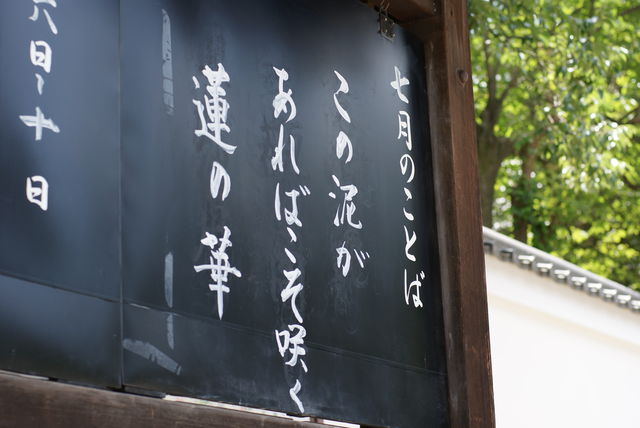 七月のことば
この泥が
あればこそ咲く
蓮の華
六日〜十日